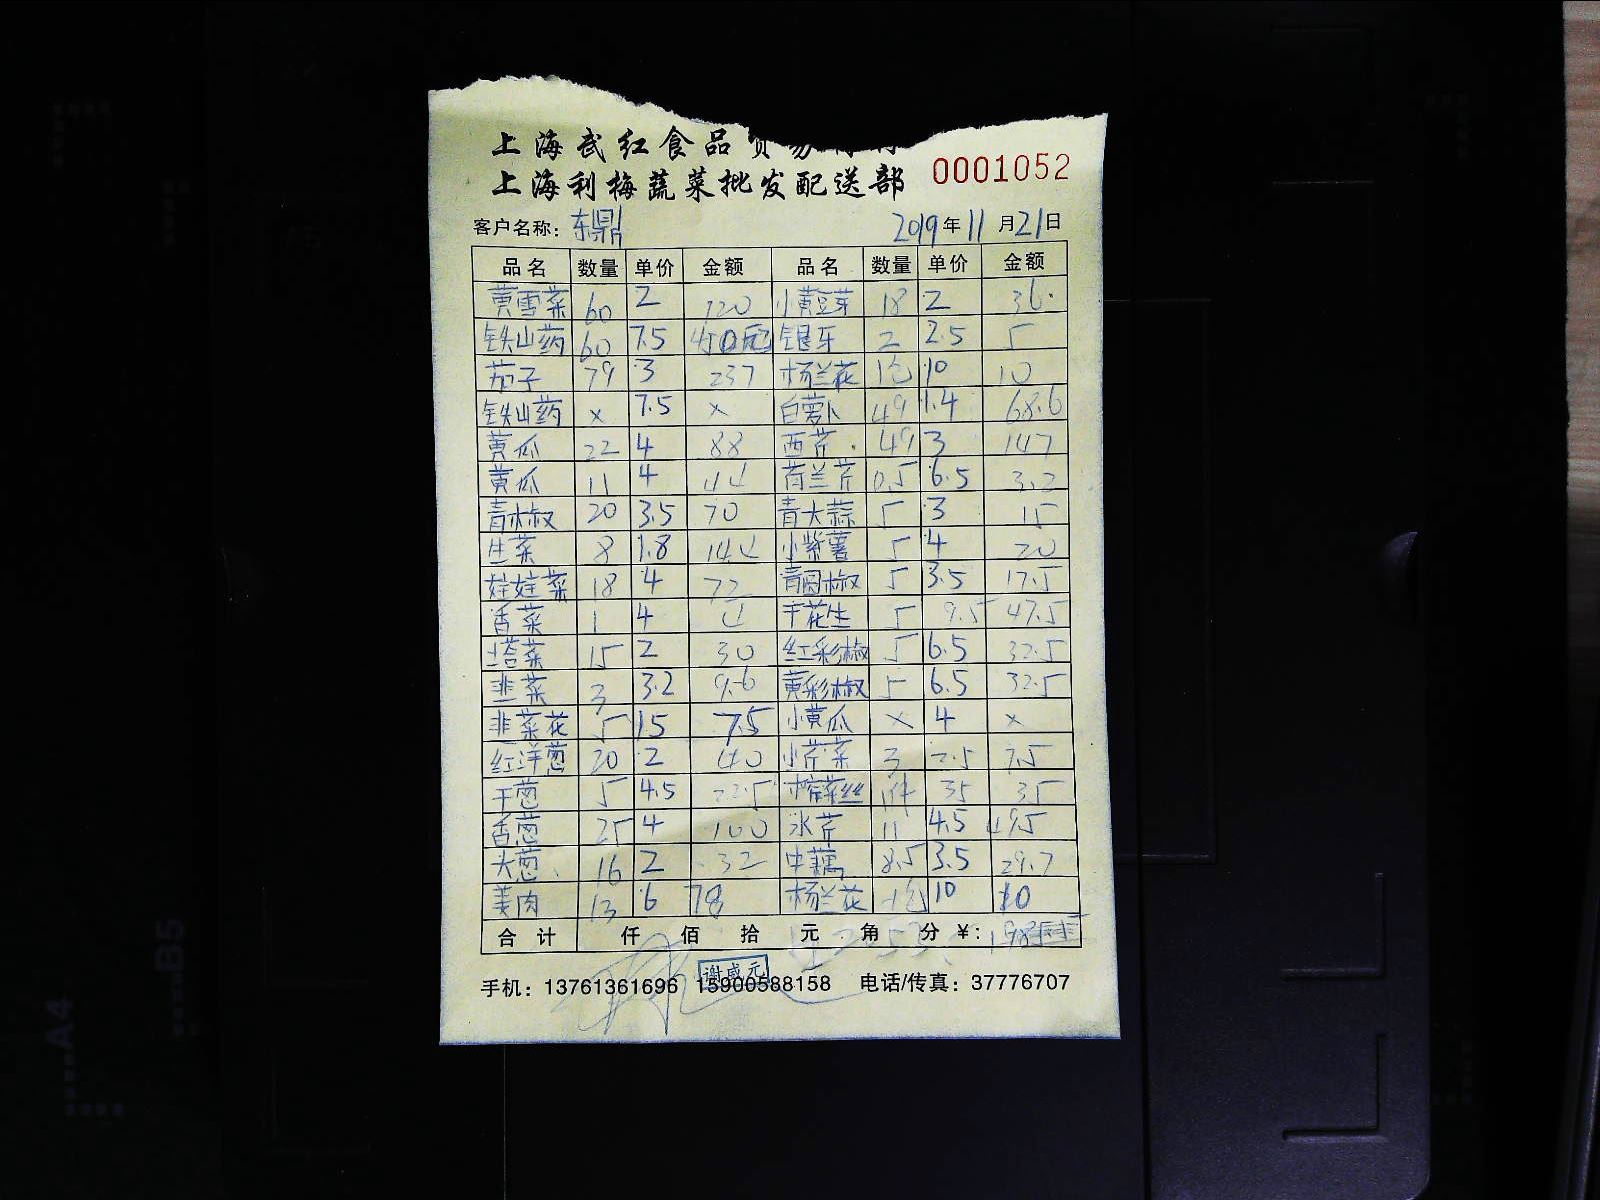 上海武红食品贸易
上海利梅蔬菜批发配送部 0001052
客户名称：东鼎 2019年11月21日
品名 数量 单价 金额 品名 数量 单价 金额
黄雪菜 60 2 120 小黄豆芽 18 2 36
铁山药 60 7.5 450 银牙 2 2.5 5
茄子 79 3 237 杨兰花 1包 10 10
铁山药 x 7.5 x 白萝卜 49 1.4 68.6
黄瓜 22 4 88 西芹 49 3 147
黄瓜 11 4 44 荷兰芹 0.5 6.5 3.2
青椒 20 3.5 70 青大蒜 5 3 15
生菜 8 1.8 14.4 小紫薯 5 4 20
娃娃菜 18 4 72 青圆椒 5 3.5 17.5
香菜 1 4 4 干花生 5 9.5 47.5
塔菜 15 2 30 红彩椒 5 6.5 32.5
韭菜 3 3.2 9.6 黄彩椒 5 6.5 32.5
韭菜花 5 1.5 7.5 小黄瓜 x 4 x
红洋葱 20 2 40 小芹菜 3 2.5 7.5
干葱 5 4.5 22.5 榨菜丝 1件 35 35
香葱 25 4 100 水芹 11 4.5 49.5
大葱 16 2 32 中藕 8.5 3.5 29.7
姜肉 13 6 78 杨兰花 1包 10 10
合计 仟 佰 拾 元 角 分 ¥：
谢咸元
手机：13761361696 15900588158 电话/传真：37776707